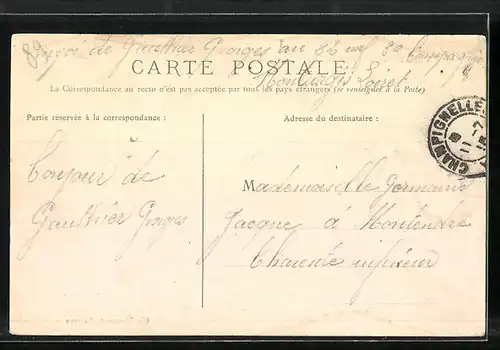 Envoi de Gauthier Georges au 82 inf 8e Compagnie
CARTE POSTALE
Montargis Loiret
La Correspondance au recto n'est pas acceptée par tous les pays étrangers (se renseigner à la Poste)
Partie réservée à la correspondance :
Adresse du destinataire :
CHAMPIGNELLES
Bonjour de
Gauthier Georges
Mademoiselle Germaine
Jacque à Montendre
Charente inférieur